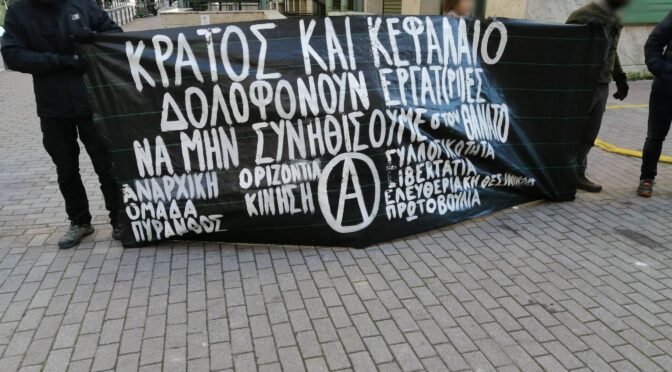 ΚΡΑΤΟΣ ΚΑΙ ΚΕΦΑΛΑΙΟ
ΔΟΛΟΦΟΝΟΥΝ ΕΡΓΑΤ(ΡΙ)ΕΣ
ΝΑ ΜΗΝ ΣΥΝΗΘΙΣΟΥΜΕ στον ΘΑΝΑΤΟ
ΑΝΑΡΧΙΚΗ
ΟΜΑΔΑ
ΠΥΡΑΝΘΟΣ
ΟΡΙΖΟΝΤΙΑ
ΚΙΝΗΣΗ
A
ΣΥΛΛΟΓΙΚΟΤΗΤΑ
LIBERTATIA
ΕΛΕΥΘΕΡΙΑΚΗ
ΠΡΩΤΟΒΟΥΛΙΑ